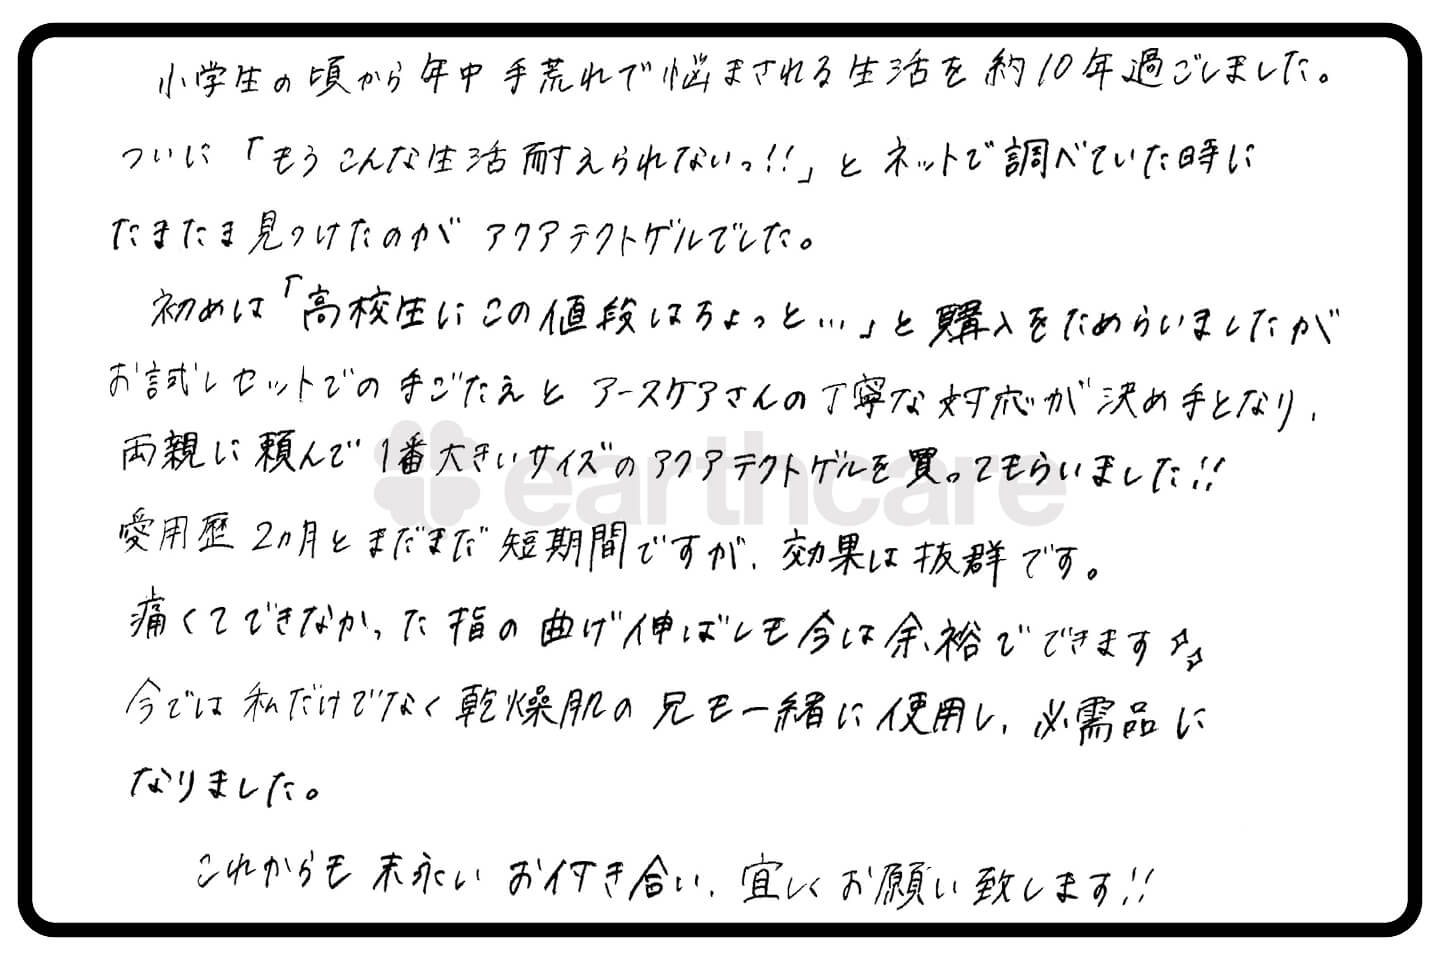 小学生の頃から年中手荒れで悩まされる生活を約10年過ごしました。
ついに「もうこんな生活耐えられないっ!!」とネットで調べていた時に
たまたま見つけたのがアクアテクトゲルでした。
初めは「高校生にこの値段はちょっと…」と購入をためらいましたが
お試しセットでの手ごたえとアースケアさんの丁寧な対応が決め手となり、
両親に頼んで1番大きいサイズのアクアテクトゲルを買ってもらいました!!
earthcare
愛用歴2ヵ月とまだまだ短期間ですが、効果は抜群です。
痛くてできなかった指の曲げ伸ばしも今は余裕でできます☆☆
今では私だけでなく乾燥肌の兄も一緒に使用し、必需品に
なりました。
これからも末永いお付き合い、宜しくお願い致します!!